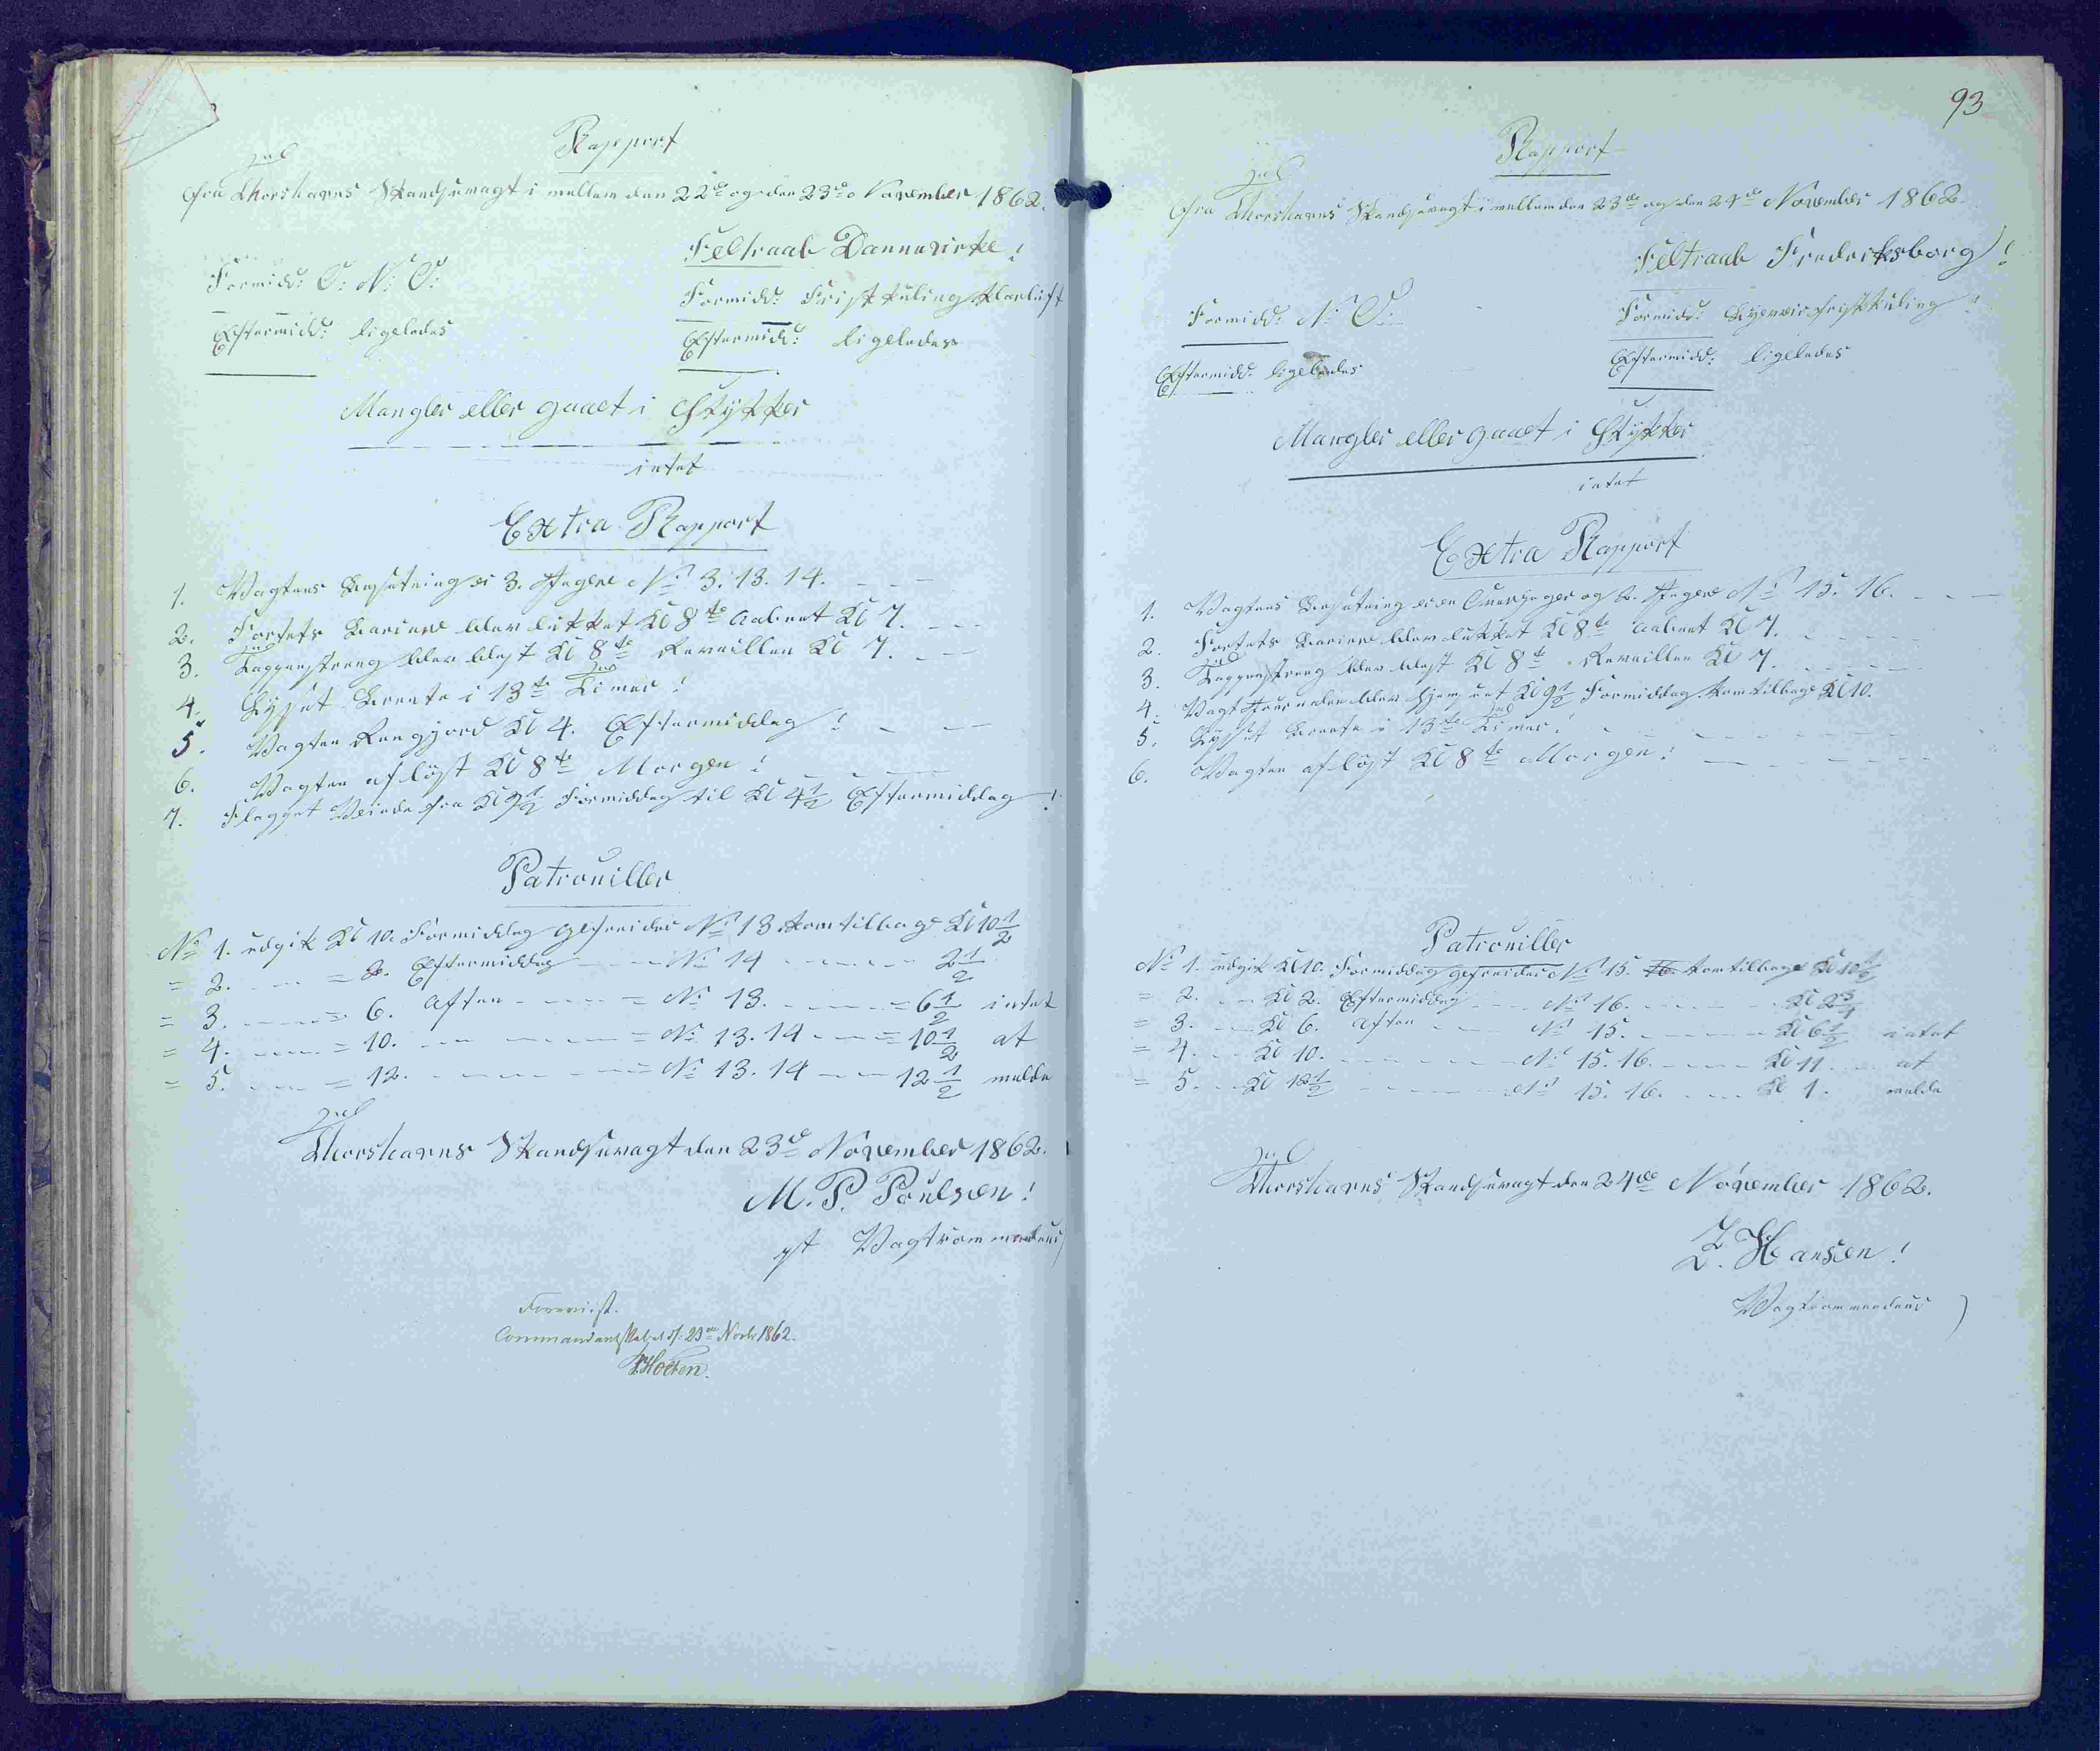 Rapport
fra Thorshavns Skandsevagt i mellem den 22de og den 23de November 1862.
Feltraab Dannevirke!
Formidd: O: N: O:
Formidd: Frisk Kuling Klarluft
Eftermidd: ligeledes
Eftermidd: ligeledes
Mangler eller gaaet i Stykker
intet
Extra Rapport
1. Vagtens Besætning er 3. Jægere No 3. 13. 14.
2. Fortets Bariere blev lukket Kl 8te Aabnet Kl 7.
3. Tappenstreng blev blæst Kl 8te Reveillen Kl 7.
4. Lyset Brænte i 13te Timer!
5. Vagten Rengjord Kl 4. Eftermiddag!
6. Vagten afløst Kl 8te Morgen!
7. Flagget Veiede fra Kl 9½ Formiddag til Kl 4½ Eftermiddag!
Patrouiller
No 1. udgik Kl 10. Formiddag Gefreider No 13 kom tilbage Kl 10½
= 2. = 2. Eftermiddag No 14 2½
= 3. = 6. Aften = No 13. = 6½ intet
= 4. = 10. = No 13. 14 = 10½ at
= 5. = 12. = No 13. 14 12½ melde
Thorshavns Skandsevagt den 23de November 1862.
M. P. Poulsen!
Vagtcommandeur
Foreviist.
Commandantskabet d/: 23de Novbr 1862.
HHolten.
93
Rapport
fra Thorshavns Skandsevagt i mellem den 23de og den 24de November 1862.
Feltraab Frederiksborg!
Formidd: N: O:
Formidd: frisk Kuling
Eftermidd: ligeledes
Eftermidd: ligeledes
Mangler eller gaaet i Stykker
intet
Extra Rapport
1. Vagtens Besætning er en Overjæger og 2. Jægere No 15. 16.
2. Fortets Bariere blev lukket Kl 8te Aabnet Kl 7.
3. Tappenstreng blev blæst Kl 8te Reveillen Kl 7.
4. Vagt Journalen blev hjem sent Kl 9½ Formiddag kom tilbage Kl 10.
5. Lyset Brænte i 13te Timer!
6. Vagten afløst Kl 8te Morgen!
Patrouiller
No 1. udgik Kl 10. Formiddag Gefreider No 15. 16. kom tilbage Kl 10½
= 2. Kl 2. Eftermiddag No 16. Kl 2¾
= 3. Kl 6. Aften No 15. Kl 6½ intet
= 4. Kl 10. No 15. 16. Kl 11. at
= 5. Kl 12½ No 15. 16. Kl 1. melde
Thorshavns Skandsevagt den 24de November 1862.
Z. Hansen!
Vagtcommandeur